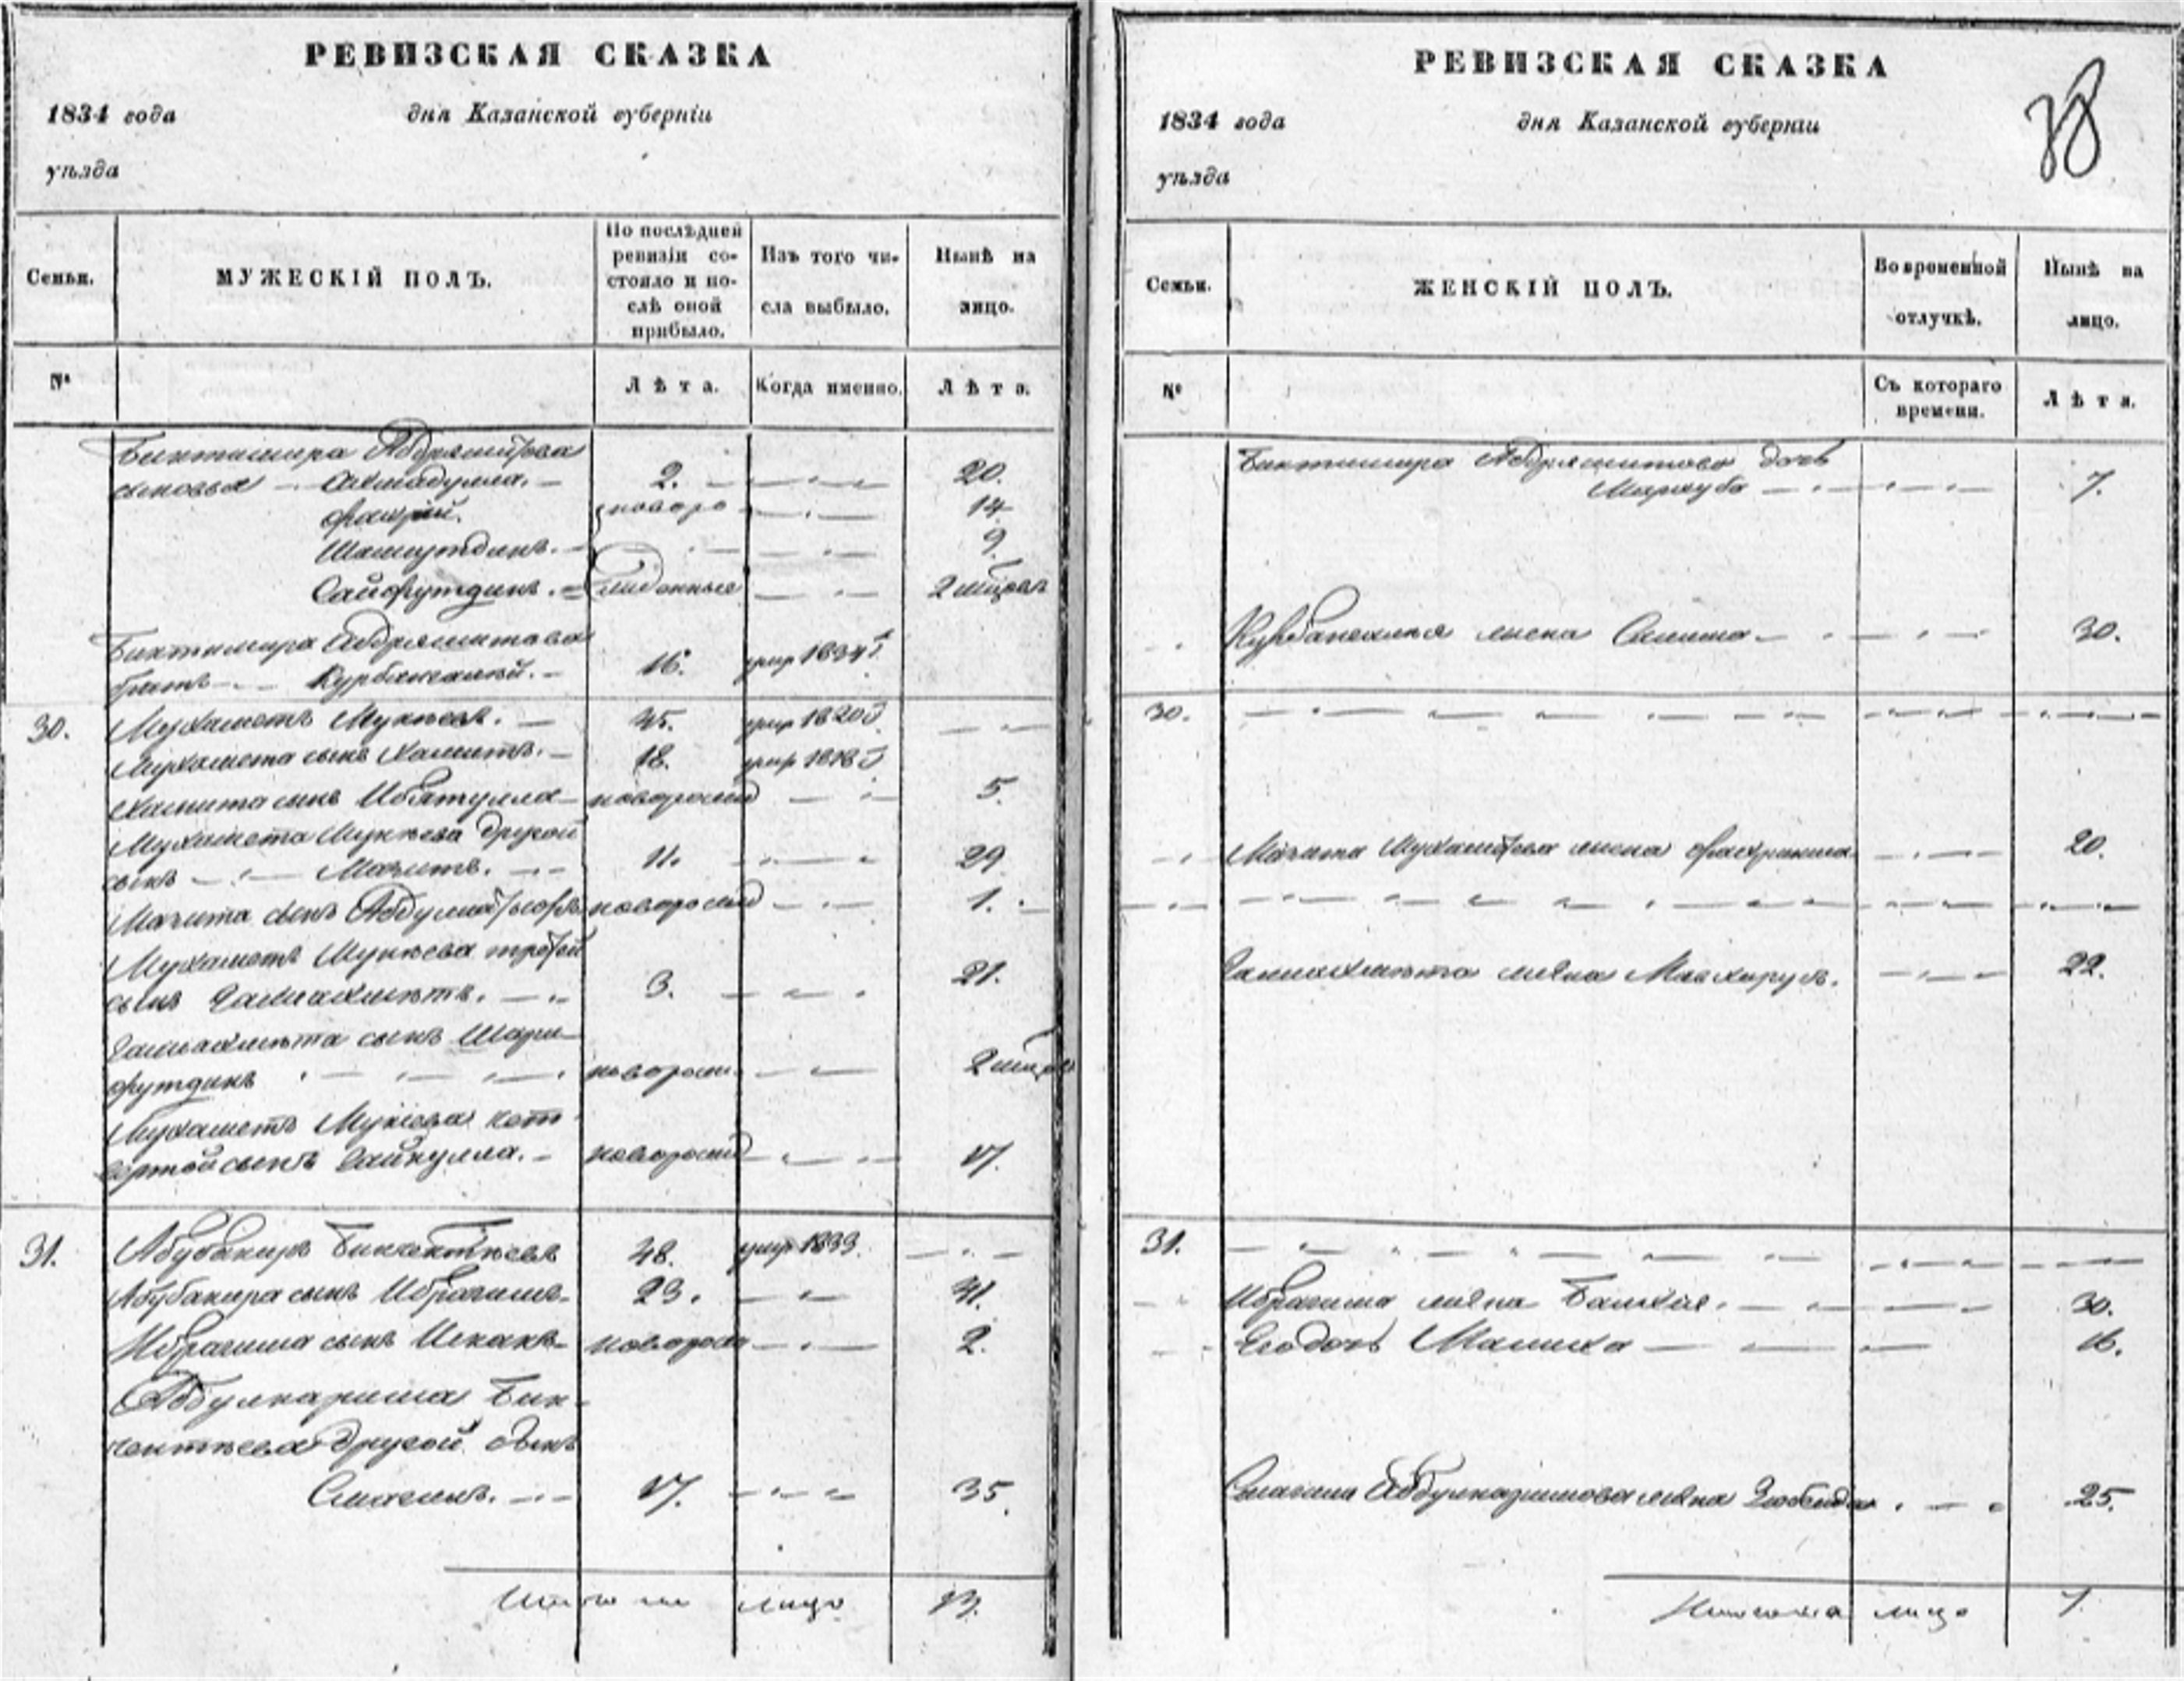 РЕВИЗСКАЯ СКАЗКА
1834 года дня Казанской губерніи
уѣзда
Семьи.
МУЖЕСКІЙ ПОЛЪ.
По послѣдней
ревизіи со-
стояло и по-
слѣ оной
прибыло.
Изъ того чи-
сла выбыло.
Нынѣ на
лицо.
№
Лѣта.
Когда именно.
Лѣта.
Биктимира Абдряшитова
сыновья Ахмадулла. 2. 20.
Фахрій. 14
Шамсутдинъ. 9
Сайфутдинъ. 2
Биктимира Абдряшитова
братъ Курбангалей. 16. умр 1834
30. Мухаметъ Мукѣевъ. 45. умр 1820
Мухамета сынъ Хамитъ. 18. умр 1818
Хамита сынъ Ибятулла новорож 5.
Мухамета Мукѣева другой
сынъ Мазитъ. 11. 29
Мазита сынъ новорож 1.
Мухаметъ Мукѣева третей
сынъ 3. 21.
сынъ Шари-
футдинъ новорож. 2
Мухаметъ Мукѣева чет
вертой сынъ новорож 17.
31. Абубакиръ Бикчентѣевъ 48. умр 1833.
Абубакира сынъ Ибрагимъ 23. 41.
Ибрагима сынъ Исхакъ новорож 2.
Абдулкарима Бик-
чентѣева другой сынъ
Смагилъ. 17. 35.
Итого на лицо 13.
РЕВИЗСКАЯ СКАЗКА
38
1834 года дня Казанской губерніи
уѣзда
Семьи.
ЖЕНСКІЙ ПОЛЪ.
Во временной
отлучкѣ.
Нынѣ на
лицо.
№
Съ котораго
времени.
Лѣта.
Биктимира Абдряшитова дочь
Мархуба 7.
Курбангалея жена Салима 30.
30.
Мазита Мухаметева жена 20.
жена 22.
31.
Ибрагима жена 30.
Его дочь Малиха 16.
Смагила Абдулкаримова жена Зюбейда 25.
Итого на лицо 7.